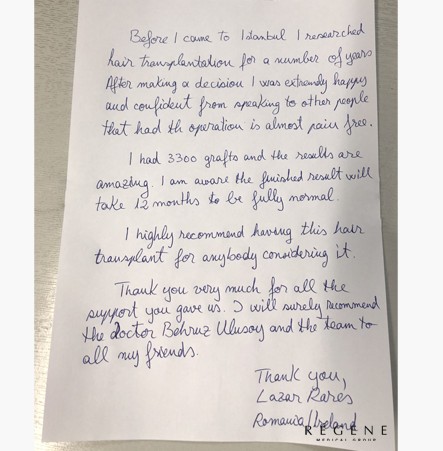 Before I came to Istanbul I researched
hair transplantation for a number of years
After making a decision I was extremely happy
and confident from speaking to other people
that had th operation is almost pain free.
I had 3300 grafts and the results are
amazing. I am aware the finished result will
take 12 months to be fully normal.
I highly recommend having this hair
transplant for anybody considering it.
Thank you very much for all the
support you gave us. I will surely recommend
the doctor Behruz Ulusoy and the team to
all my friends.
Thank you,
Lazar Rares
Romania/Ireland
REGENE
MEDICAL GROUP